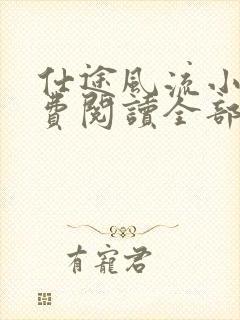 仕途風流小
費閱讀全部
有寵君